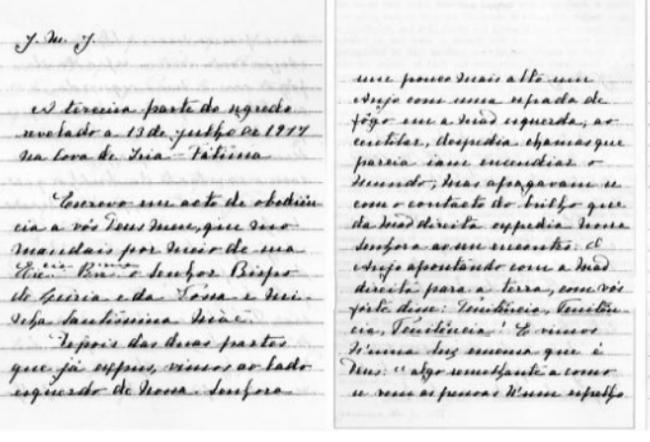 J. M. J.
A terceira parte do segredo
revelado a 13 de julho de 1917
na Cova de Iria – Fátima
Escrevo em acto de obediên
cia a vós Deus meu, que mo
mandais por meio de sua
Ex.cia Rev.ma o Senhor Bispo
de Leiria e da Vossa e mi-
nha Santíssima Mãe.
Depois das duas partes
que já expus, vimos ao lado
esquerdo de Nossa Senhora
um pouco mais alto um
Anjo com uma espada de
fôgo em a mão esquerda; ao
centilar, despedia chamas que
parecia iam encendiar o
mundo; mas apagavam-se
com o contacto do brilho que
da mão direita expedia Nossa
Senhora ao seu encontro: O
Anjo apontando com a mão
direita para a terra, com vós
forte disse: Penitência, Penitên-
cia, Penitência! E vimos
n'uma luz emensa que é
Deus: "algo semelhante a como
se vem as pessoas n'um espelho